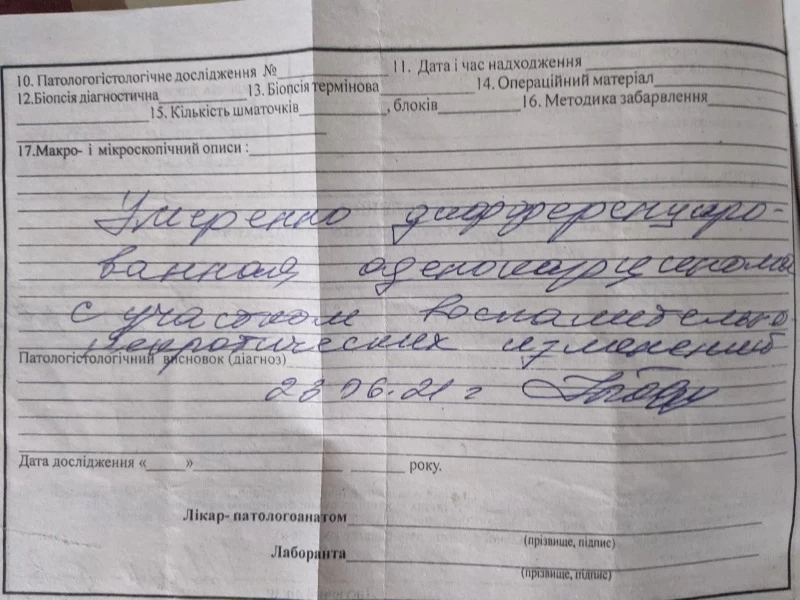 10. Патологогістологічне дослідження № 11. Дата і час надходження
12.Біопсія діагностична 13. Біопсія термінова 14. Операційний матеріал
15. Кількість шматочків , блоків 16. Методика забарвлення
17.Макро- і мікроскопічний описи :
Умеренно дифференциро-
ванная аденокарцинома
с участком воспалительно-
некротических изменений
Патологістологічний висновок (діагноз)
23 06.21 г
Дата дослідження « » року.
Лікар- патологоанатом
(прізвище, підпис)
Лаборанта
(прізвище, підпис)